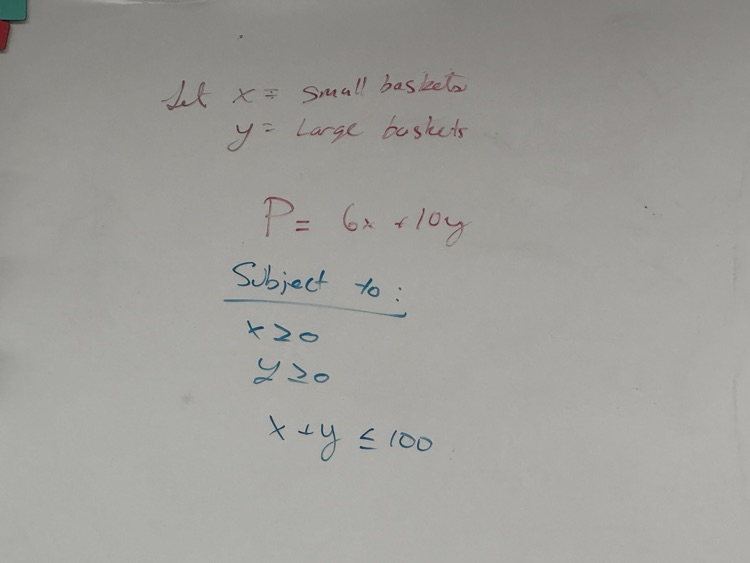 Let x = small baskets
y = Large baskets
P = 6x + 10y
Subject to :
x ≥ 0
y ≥ 0
x + y ≤ 100